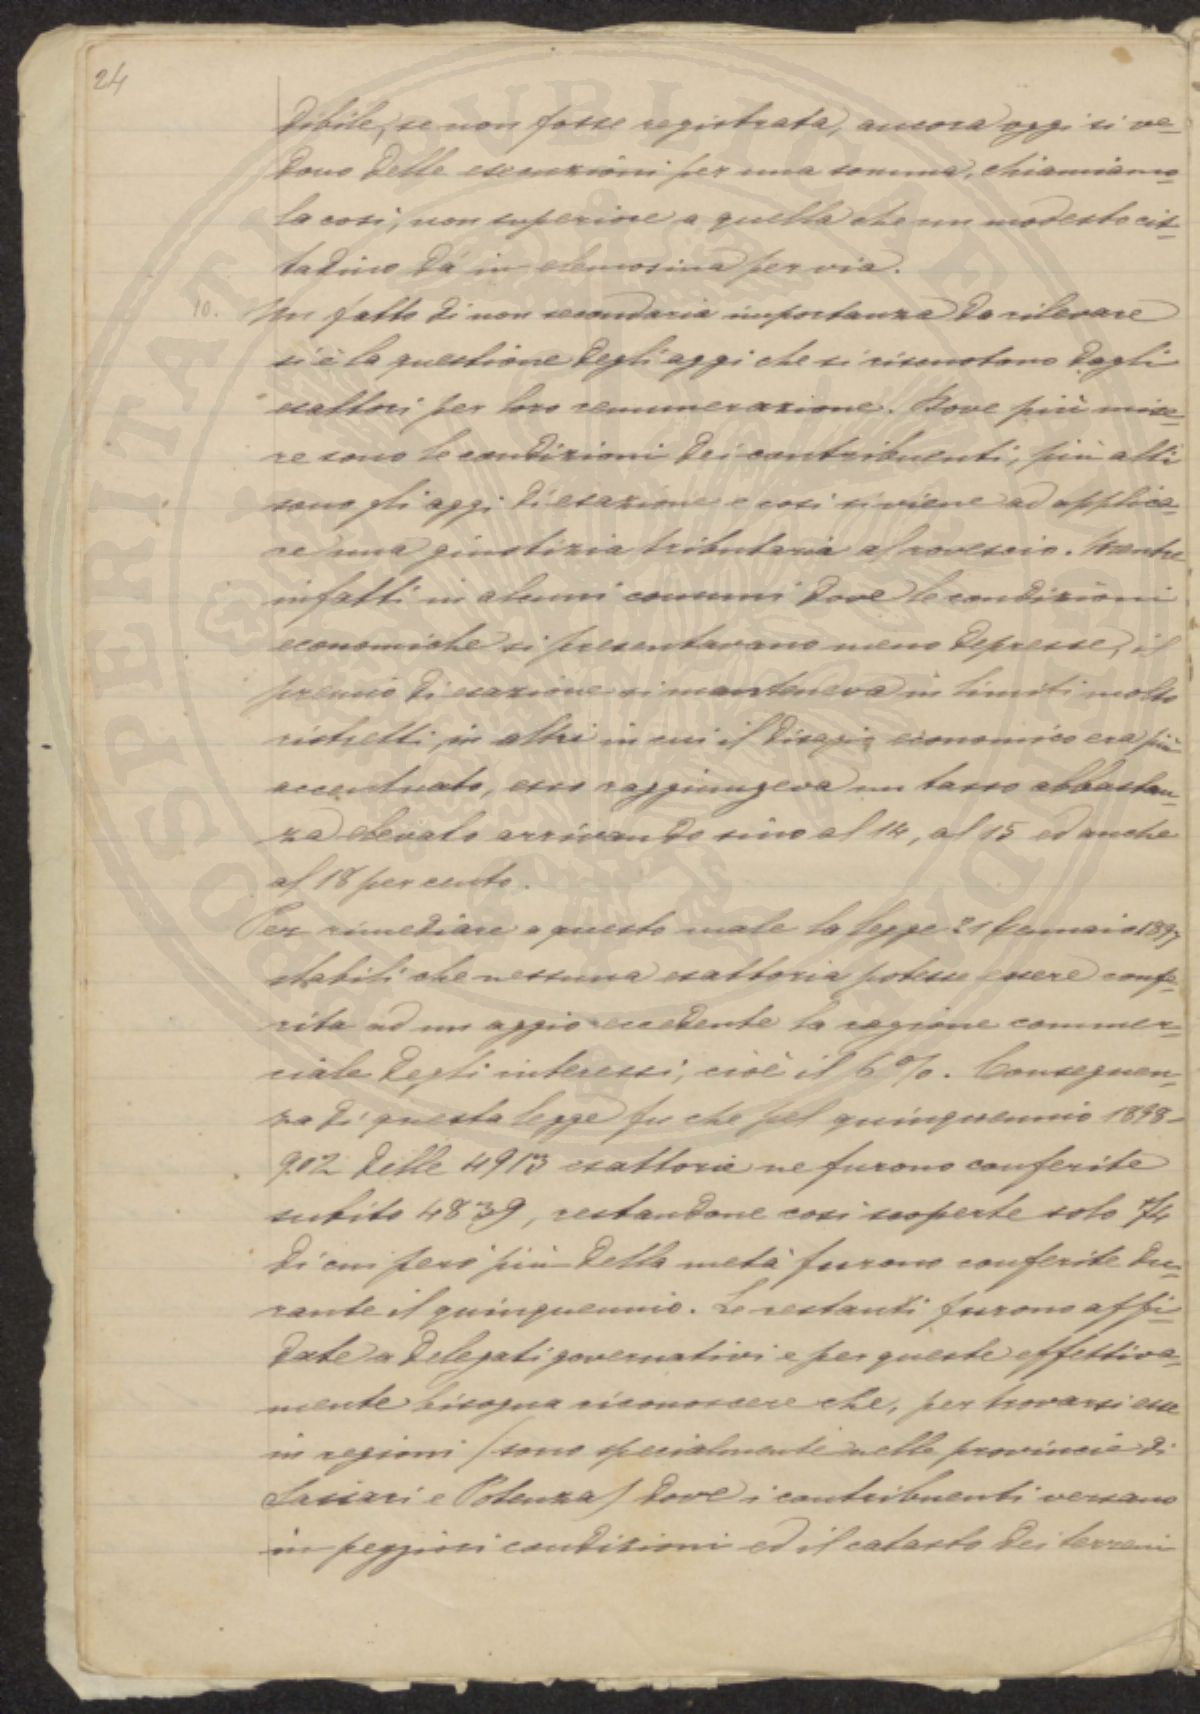 24
dibile, se non fosse registrata, ancora oggi si ve-
dono delle esecuzioni per una somma, chiamiamo-
la così, non superiore a quella che un modesto cit-
tadino dà in elemosina per via.
10. Un fatto di non secondaria importanza da rilevare
si è la questione degli aggi che si riscuotono dagli
esattori per loro remunerazione. Dove più mise-
re sono le condizioni dei contribuenti, più alti
sono gli aggi di esazione e così si viene ad applica-
re una giustizia tributaria al rovescio. Mentre
infatti in alcuni comuni dove le condizioni
economiche si presentavano meno depresse, il
premio di esazione si manteneva in limiti molto
ristretti, in altri in cui il disagio economico era più
accentuato, esso raggiungeva un tasso abbastan-
za elevato arrivando sino al 14, al 15 ed anche
al 18 per cento.
Per rimediare a questo male la legge 21 Gennaio 1897
stabilì che nessuna esattoria potesse essere confe-
rita ad un aggio eccedente la ragione commer-
ciale degli interessi, cioè il 6%. Conseguen-
za di questa legge fu che pel quinquennio 1898-
902 delle 4913 esattorie ne furono conferite
subito 4839, restandone così scoperte solo 74
di cui però più della metà furono conferite du-
rante il quinquennio. Le restanti furono affi-
date a delegati governativi e per queste effettiva-
mente bisogna riconoscere che, per trovarsi esse
in regioni (sono specialmente nelle provincie di
Sassari e Potenza) dove i contribuenti versano
in peggiori condizioni ed il catasto dei terreni
PROSPERITATI PUBLICAE